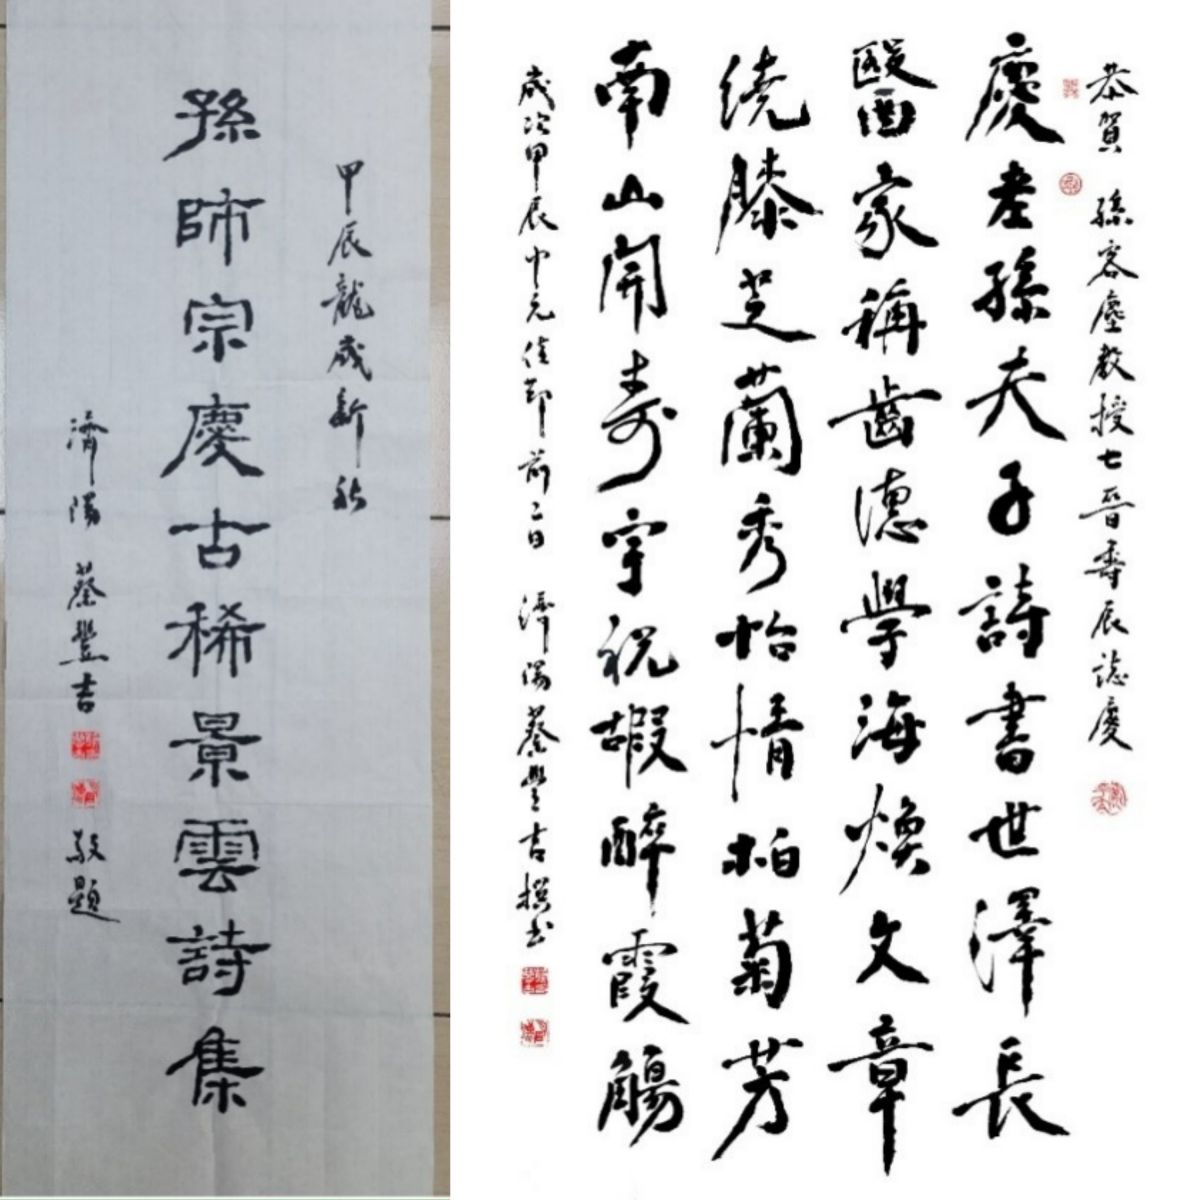 恭賀 孫容塵教授七晉壽辰誌慶
慶老孫夫子詩書世澤長
醫家稱齒德學海煥文章
繞膝芝蘭秀怡情柏菊芳
南山開壽宇祝嘏醉霞觴
歲次甲辰中元佳節前二日 濟陽蔡豐吉撰书
甲辰龍歲新秋
孫師宗慶古稀景雲詩集
濟陽 蔡豐吉 敬題